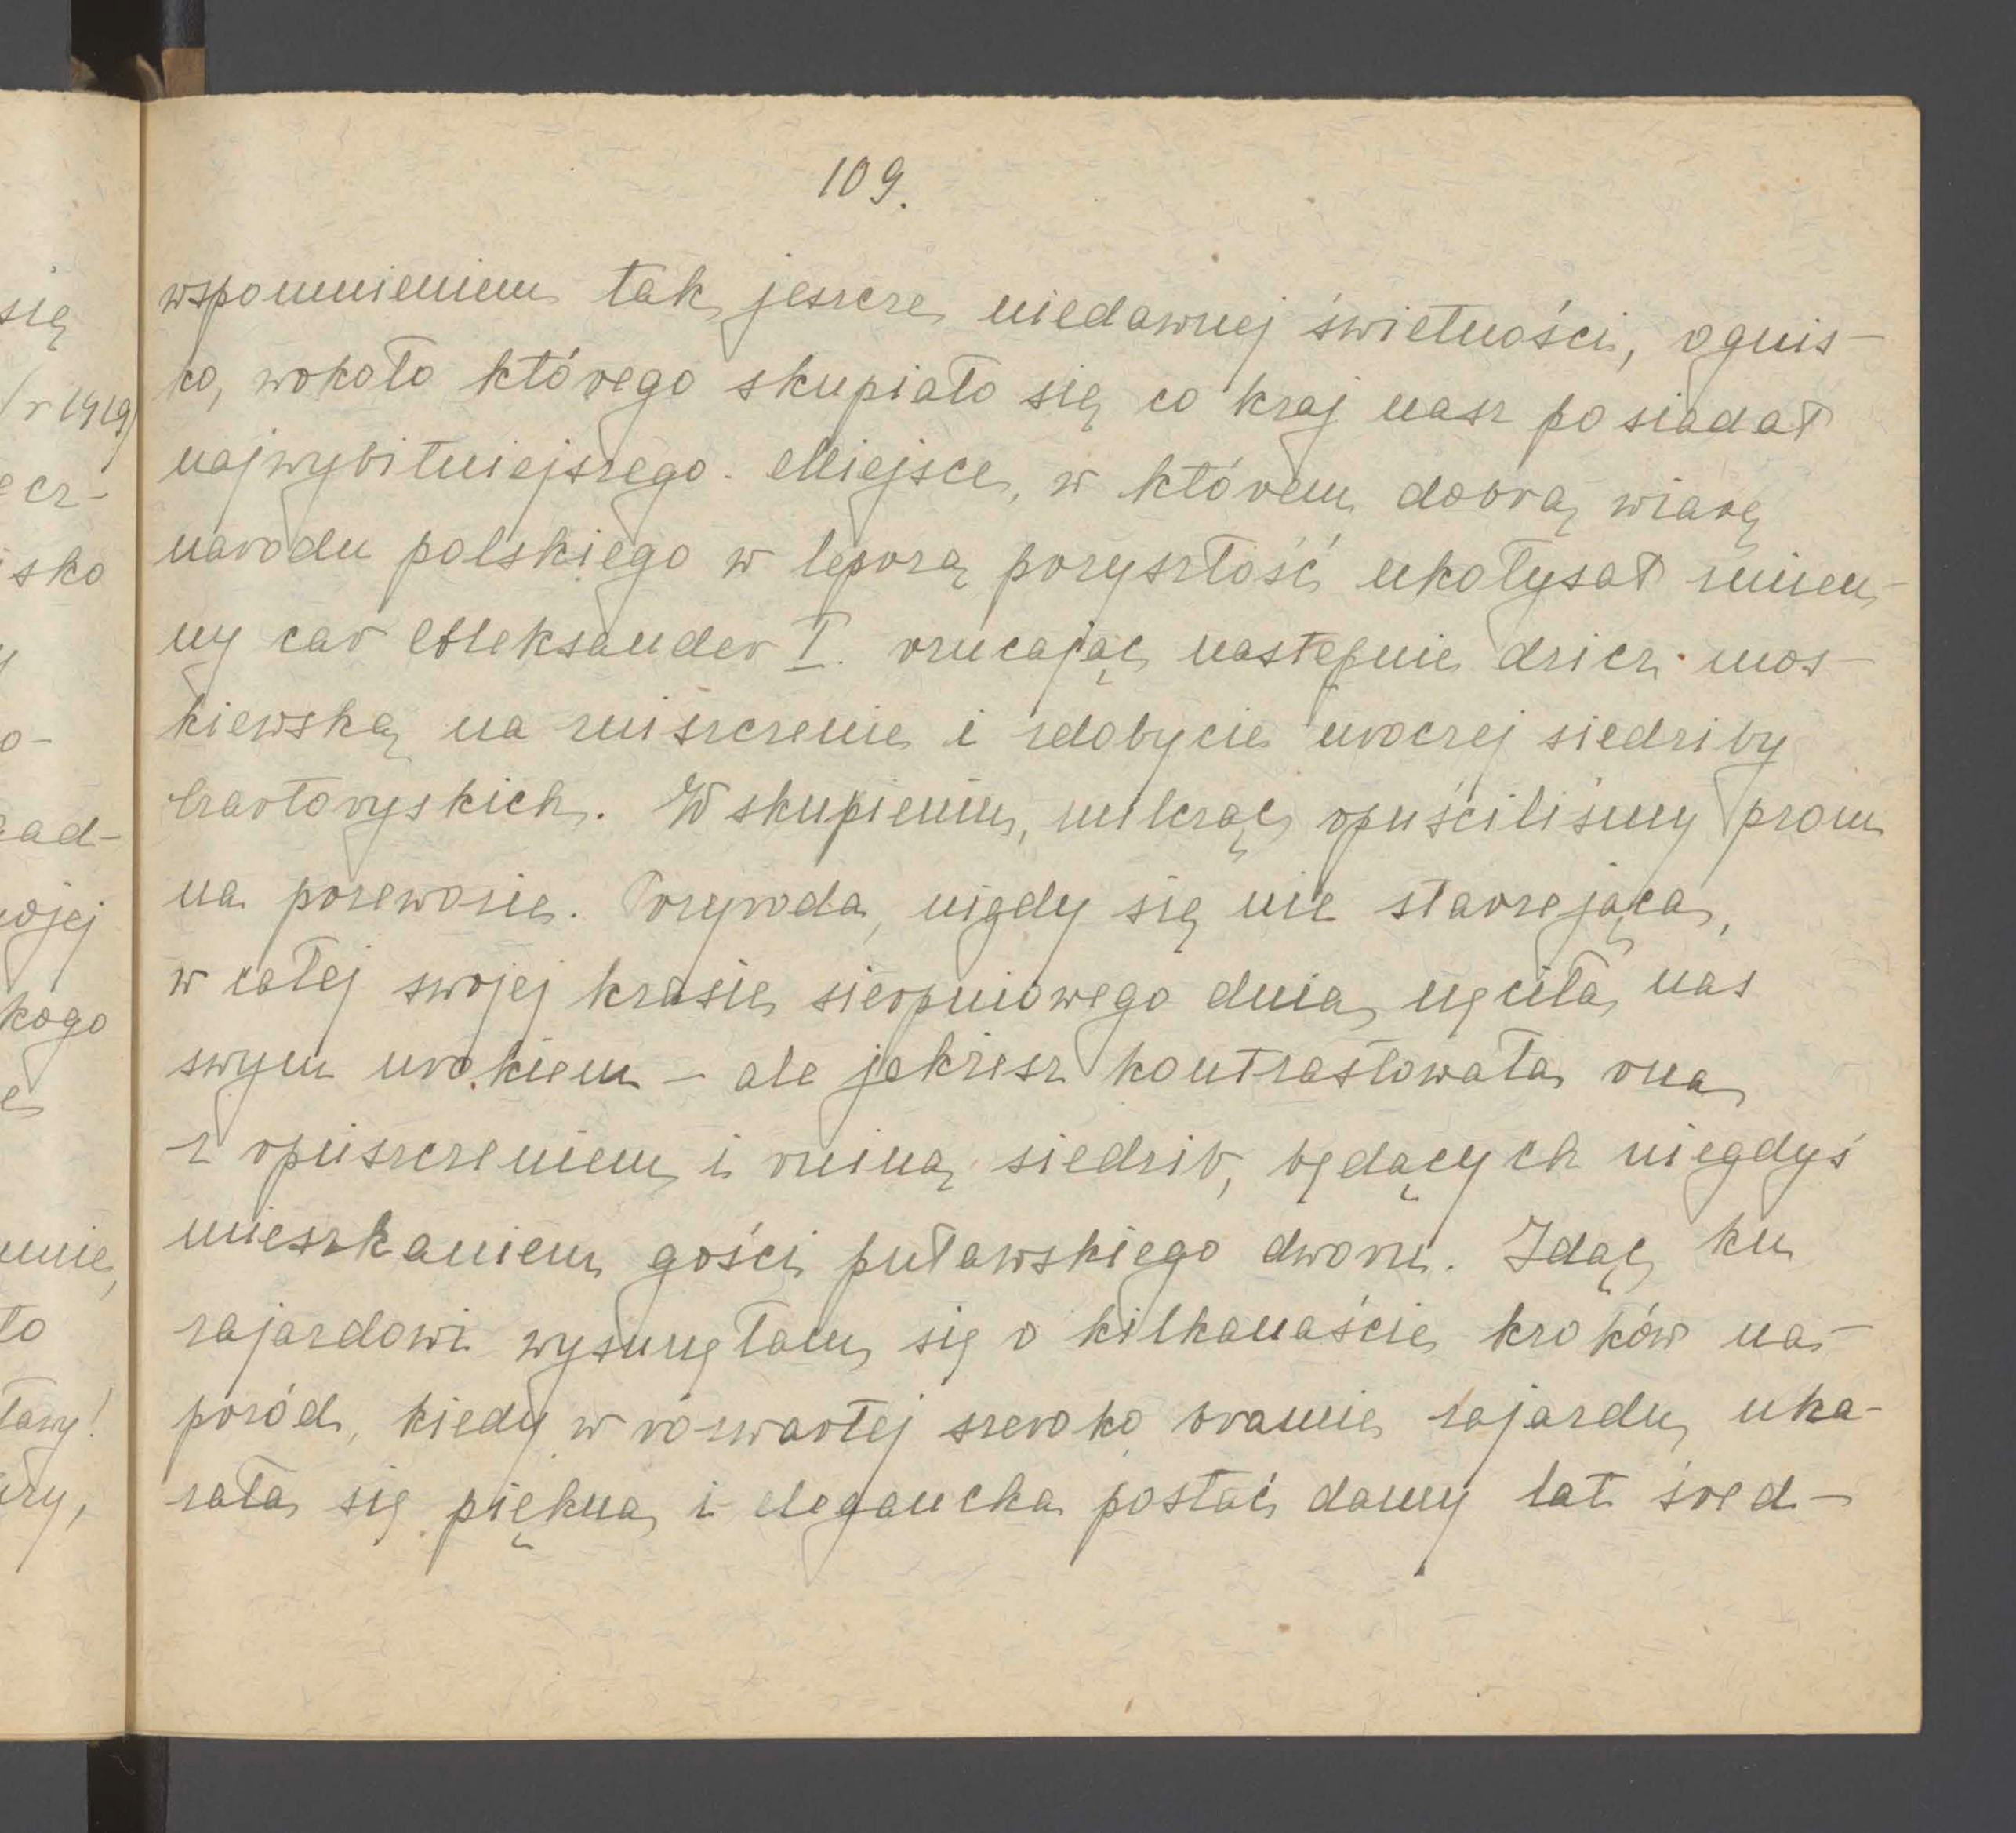 109.
wspomnieniem tak jeszcze niedawnej świetności, ognis-
ko, wokoło którego skupiało się co kraj nasz posiadał
najwybitniejszego. Miejsce, w którem dobrą wiarę
narodu polskiego w lepszą przyszłość ukołysał zmien-
ny car Aleksander I. rzucając następnie dzicz mos-
kiewską na zniszczenie i zdobycie uroczej siedziby
Czartoryskich. W skupieniu, milcząc opuściliśmy prom
na przewozie. Przyroda, nigdy się nie starzejąca,
w całej swojej krasie sierpniowego dnia nęciła nas
swym urokiem – ale jakżesz kontrastowała ona
z opuszczeniem i ruiną siedzib, będących niegdyś
mieszkaniem gości puławskiego dworu. Idąc ku
zajazdowi wysunęłam się o kilkanaście kroków na-
przód, kiedy w rozwartej szeroko bramie zajazdu uka-
zała się piękna i elegancka postać damy lat śred-
się
/r 1919/
ecz-
isko
y
o-
zad-
wojej
kogo
e
mnie,
to
ławy!
zry,